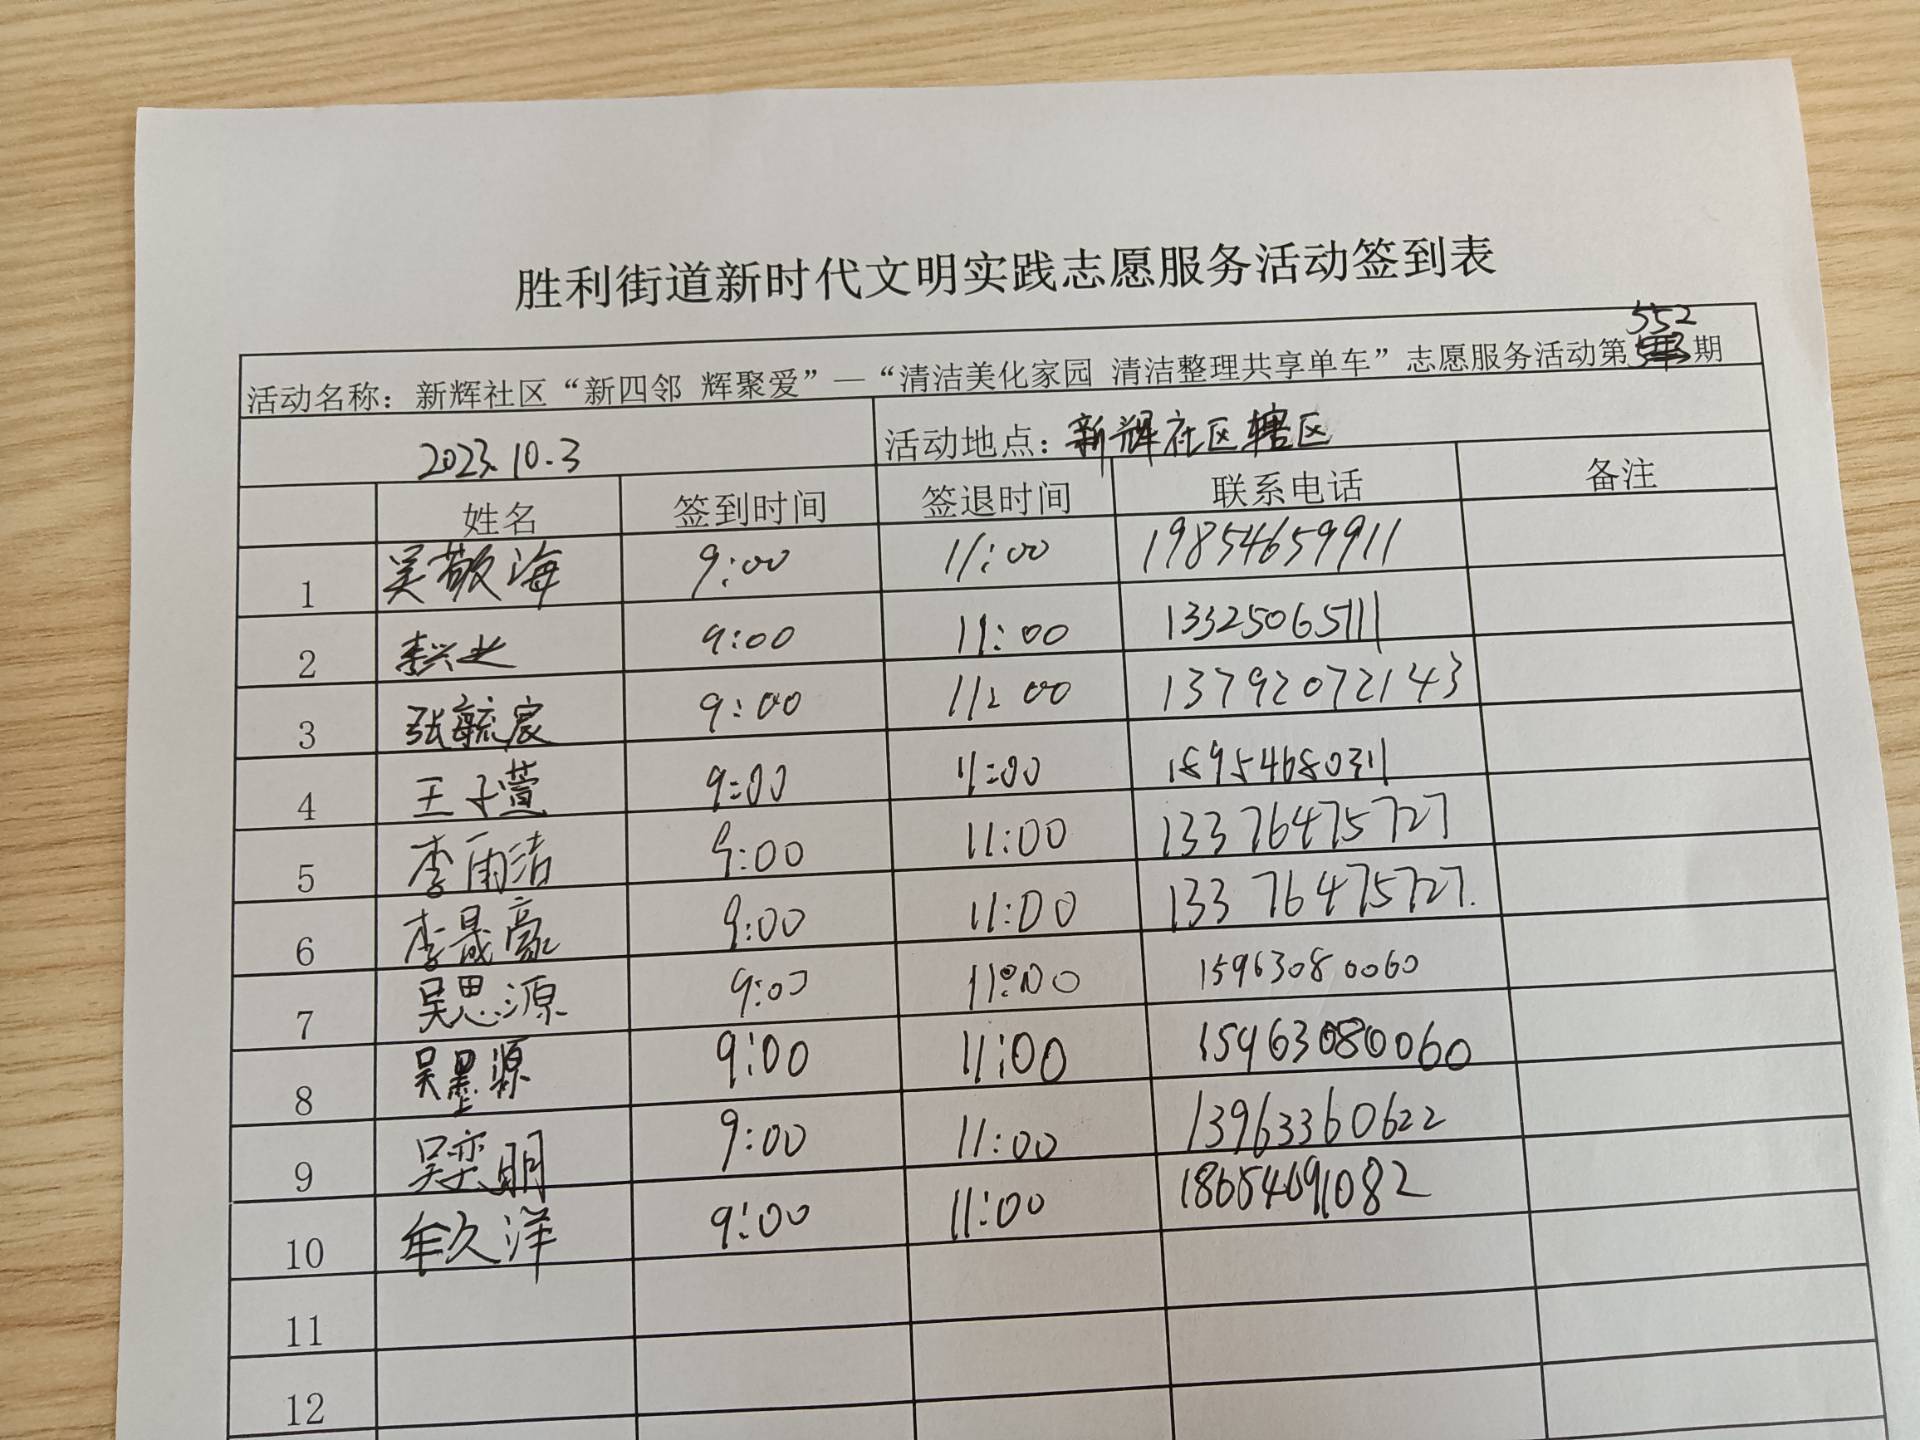 胜利街道新时代文明实践志愿服务活动签到表
活动名称：新辉社区“新四邻 辉聚爱”—“清洁美化家园 清洁整理共享单车”志愿服务活动第552期
2023.10.3 活动地点：新辉社区辖区
姓名 签到时间 签退时间 联系电话 备注
1 吴敬海 9:00 11:00 19854659911
2 李兴业 9:00 11:00 13325065111
3 张毓宸 9:00 11:00 13792072143
4 王子萱 9:00 11:00 18954680311
5 李雨洁 9:00 11:00 13376475727
6 李晟豪 9:00 11:00 13376475727.
7 吴思源 9:00 11:00 15963080060
8 吴墨源 9:00 11:00 15963080060
9 吴奕明 9:00 11:00 13963360622
10 牟久洋 9:00 11:00 18654691082
11
12